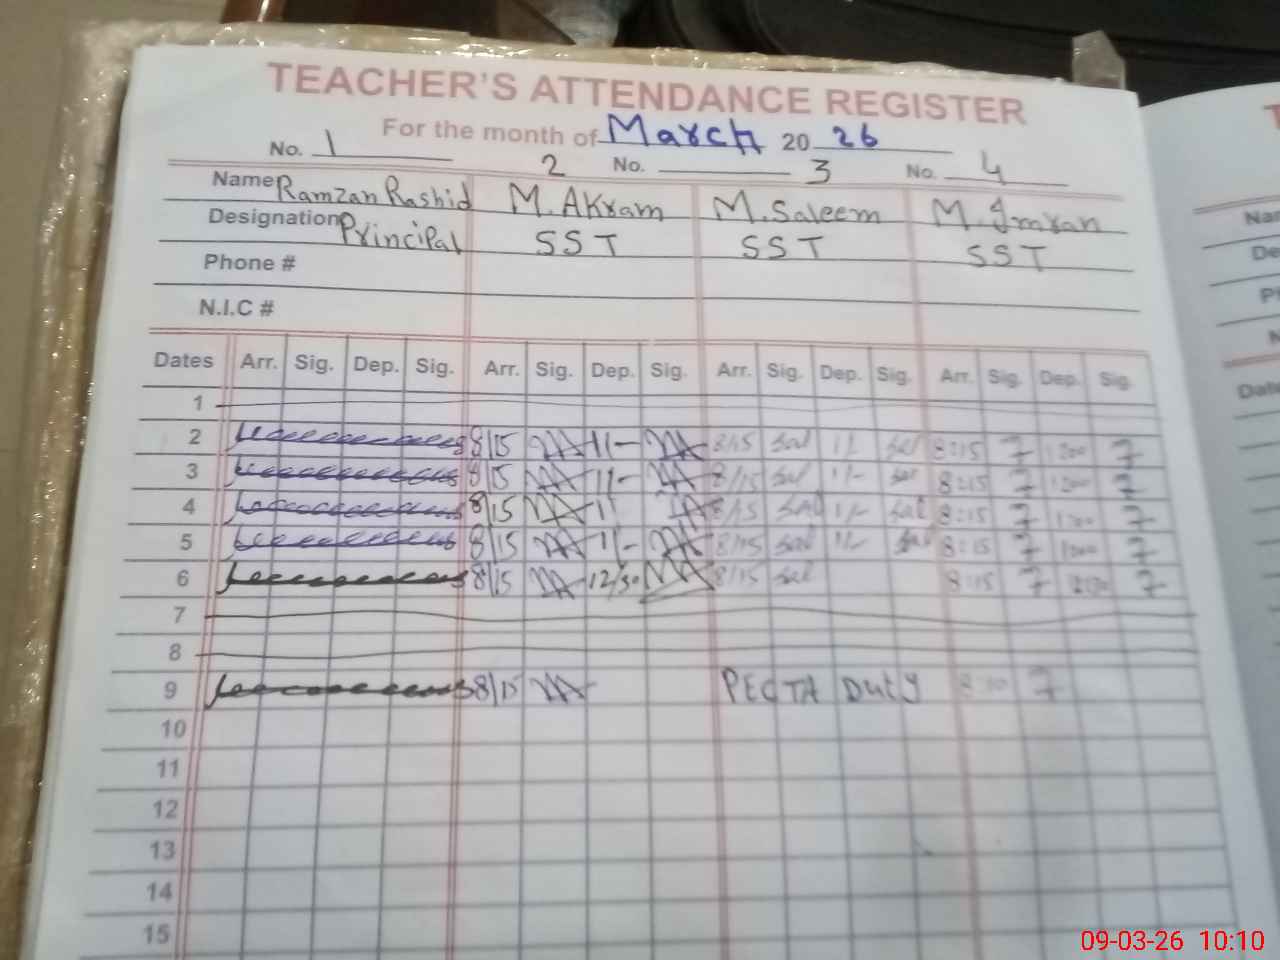 TEACHER'S ATTENDANCE REGISTER
For the month of March 20 26
No. 1 2 No. 3 No. 4
Name Ramzan Rashid M. Akram M. Saleem M. Imran
Designation Principal SST SST SST
Phone #
N.I.C #
Dates Arr. Sig. Dep. Sig. Arr. Sig. Dep. Sig. Arr. Sig. Dep. Sig. Arr. Sig. Dep. Sig.
1
2 8/15 11- 8/15 Sal 1/- Sal 8:15 1200
3 8/15 11- 8/15 Sal 1/- Sal 8:15 1200
4 8/15 11 8/15 Sal 1/- Sal 8:15
5 8/15 11- 8/15 Sal 1/- Sal 8:15
6 8/15 12/30 8/15 Sal 8:15
7
8
9 8/15 PECTA Duty
10
11
12
13
14
15
09-03-26 10:10